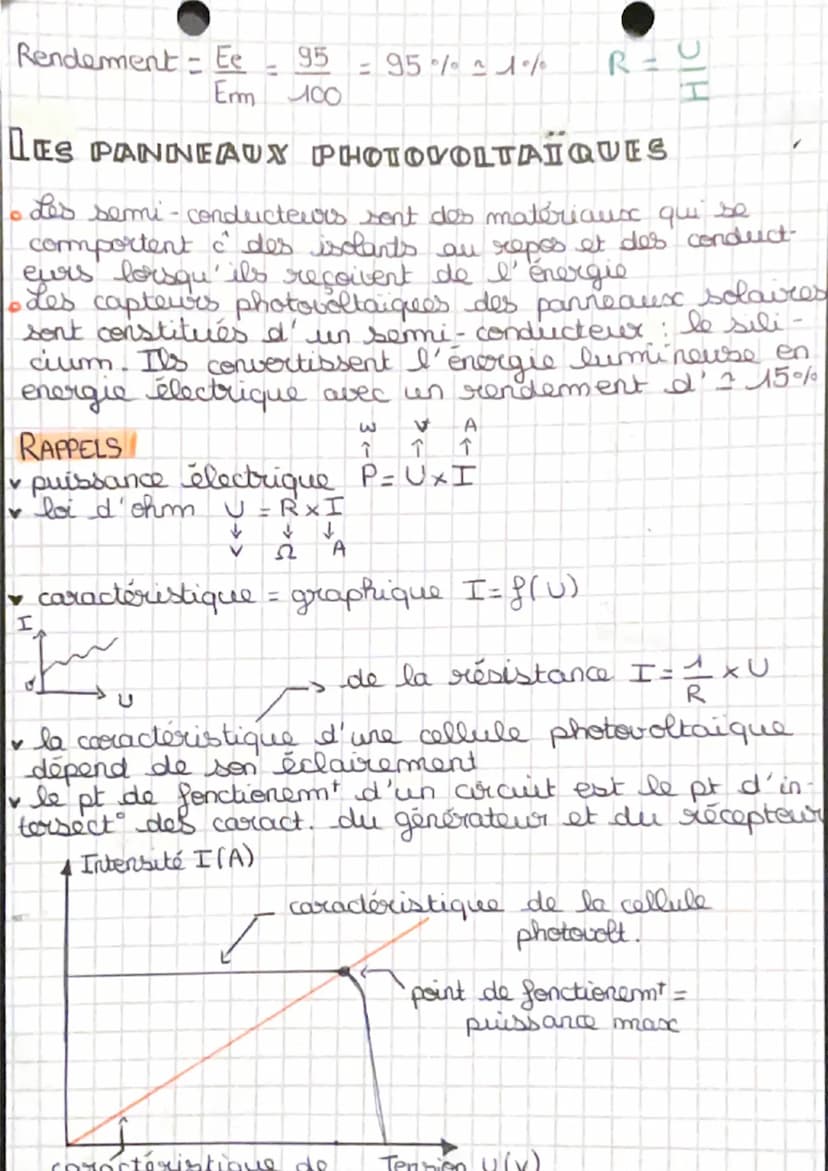 Rendement = Ee/Em = 95/100 = 95% ≃ 1% R = U/I
LES PANNEAUX PHOTOVOLTAÏQUES
• Les semi-conducteurs sont des matériaux qui se
comportent ĉ des isolants au repos et des conduct-
eurs lorsqu'ils reçoivent de l'énergie
• Les capteurs photovoltaïques des panneaux solaires
sont constitués d'un semi-conducteur : le sili-
cium. Ils convertissent l'énergie lumineuse en
energie électrique avec un rendement d'≃ 15%
RAPPELS
W V A
↑ ↑ ↑
v puissance électrique P = U x I
v loi d'ohm U = R x I
↓ ↓ ↓
V Ω A
v caractéristique = graphique I = f(U)
I
0 U
→ de la résistance I = 1/R x U
v la caractéristique d'une cellule photovoltaique
dépend de son éclairement
v le pt de fonctionem^t d'un circuit est le pt d'in-
tersect° des caract. du générateur et du récepteur
Intensité I(A)
caractéristique de la cellule
photovolt.
point de fonctionem^t =
puissance max
caractéristique de Tension U(V)